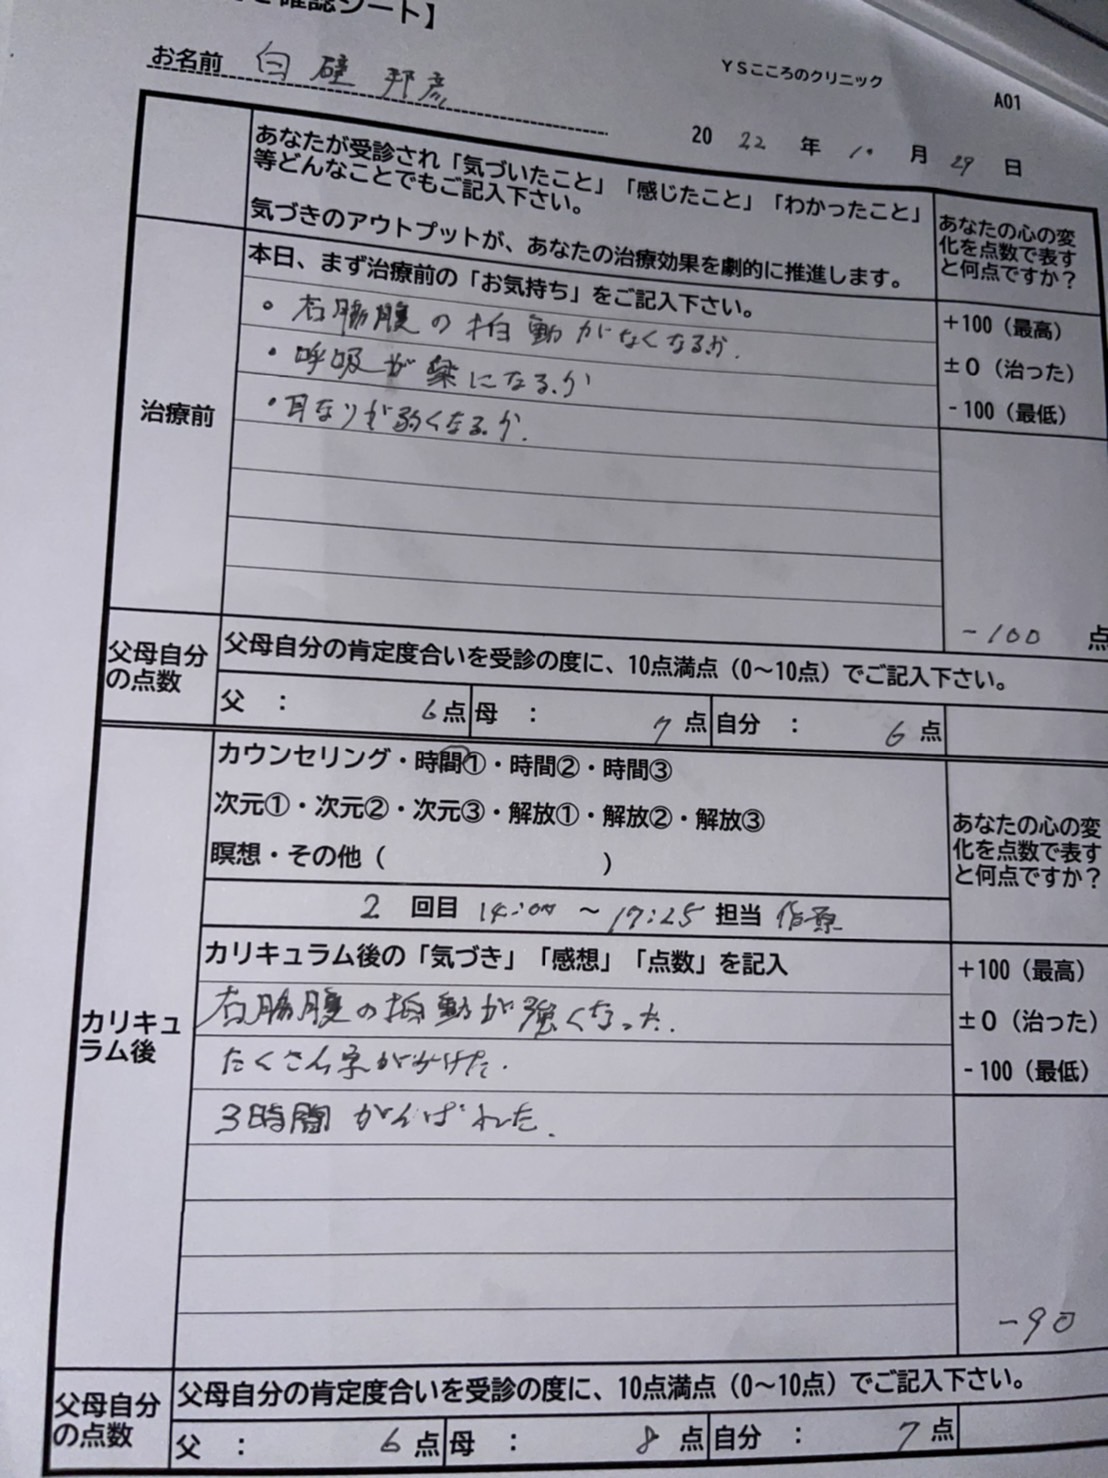 確認シート】
お名前 白碶邦彦
YSこころのクリニック
A01
2022年10月29日
あなたが受診され「気づいたこと」「感じたこと」「わかったこと」
等どんなことでもご記入下さい。
気づきのアウトプットが、あなたの治療効果を劇的に推進します。
あなたの心の変
化を点数で表す
と何点ですか？
治療前
本日、まず治療前の「お気持ち」をご記入下さい。
。右脇腹の拍動がなくなるか.
・呼吸が楽になるか
・耳なりが弱くなるか.
+100（最高）
±0（治った）
-100（最低）
-100 点
父母自分
の点数
父母自分の肯定度合いを受診の度に、10点満点（0〜10点）でご記入下さい。
父 ： 6点 母 ： 7点 自分 ： 6点
カリキュ
ラム後
カウンセリング・時間①・時間②・時間③
次元①・次元②・次元③・解放①・解放②・解放③
瞑想・その他（ ）
2 回目 14:00 〜 17:25 担当
あなたの心の変
化を点数で表す
と何点ですか？
カリキュラム後の「気づき」「感想」「点数」を記入
右脇腹の拍動が強くなった.
たくさん字がかけた.
3時間がんばれた.
+100（最高）
±0（治った）
-100（最低）
-90
父母自分
の点数
父母自分の肯定度合いを受診の度に、10点満点（0〜10点）でご記入下さい。
父 ： 6点 母 ： 8点 自分 ： 7点